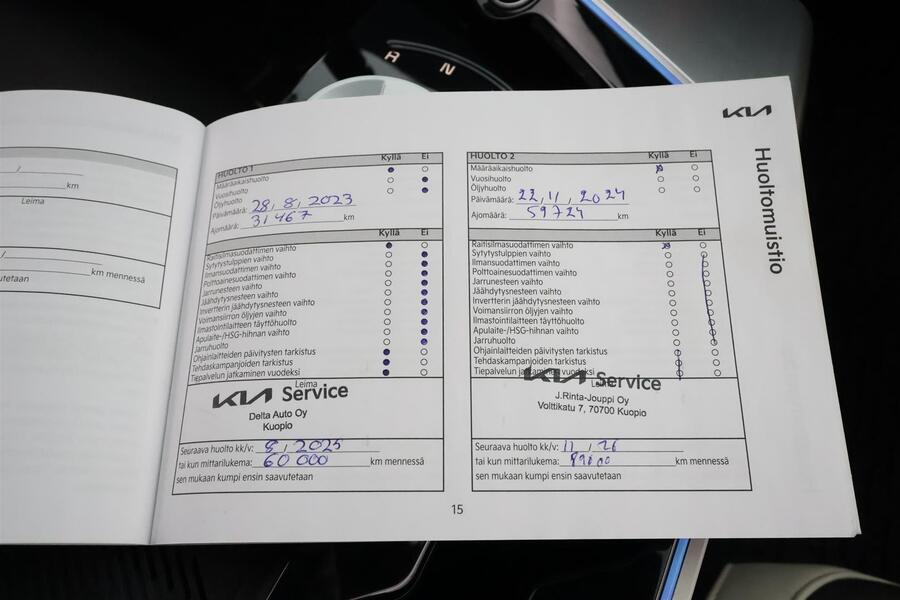 R
N
KIA
Huoltomuistio
km
Leima
km mennessä
HUOLTO 1
Kyllä Ei
Määräaikaishuolto
Vuosihuolto
Öljyhuolto
Päivämäärä: 28, 8, 2023
Ajomäärä: 31 467 km
Kyllä Ei
Raitisilmasuodattimen vaihto
Sytytystulppien vaihto
Ilmansuodattimen vaihto
Polttoainesuodattimen vaihto
Jarrunesteen vaihto
Jäähdytysnesteen vaihto
Invertterin jäähdytysnesteen vaihto
Voimansiirron öljyjen vaihto
Ilmastointilaitteen täyttöhuolto
Apulaite-/HSG-hihnan vaihto
Jarruhuolto
Ohjainlaitteiden päivitysten tarkistus
Tehdaskampanjoiden tarkistus
Tiepalvelun jatkaminen vuodeksi
Leima
KIA Service
Delta Auto Oy
Kuopio
Seuraava huolto kk/v: 8, 2025
tai kun mittarilukema: 60 000 km mennessä
sen mukaan kumpi ensin saavutetaan
HUOLTO 2
Kyllä Ei
Määräaikaishuolto
Vuosihuolto
Öljyhuolto
Päivämäärä: 22, 11, 2024
Ajomäärä: 59724 km
Kyllä Ei
Raitisilmasuodattimen vaihto
Sytytystulppien vaihto
Ilmansuodattimen vaihto
Polttoainesuodattimen vaihto
Jarrunesteen vaihto
Jäähdytysnesteen vaihto
Invertterin jäähdytysnesteen vaihto
Voimansiirron öljyjen vaihto
Ilmastointilaitteen täyttöhuolto
Apulaite-/HSG-hihnan vaihto
Jarruhuolto
Ohjainlaitteiden päivitysten tarkistus
Tehdaskampanjoiden tarkistus
Tiepalvelun jatkaminen vuodeksi
KIA Service
J.Rinta-Jouppi Oy
Volttikatu 7, 70700 Kuopio
Seuraava huolto kk/v: 11, 26
tai kun mittarilukema: km mennessä
sen mukaan kumpi ensin saavutetaan
15